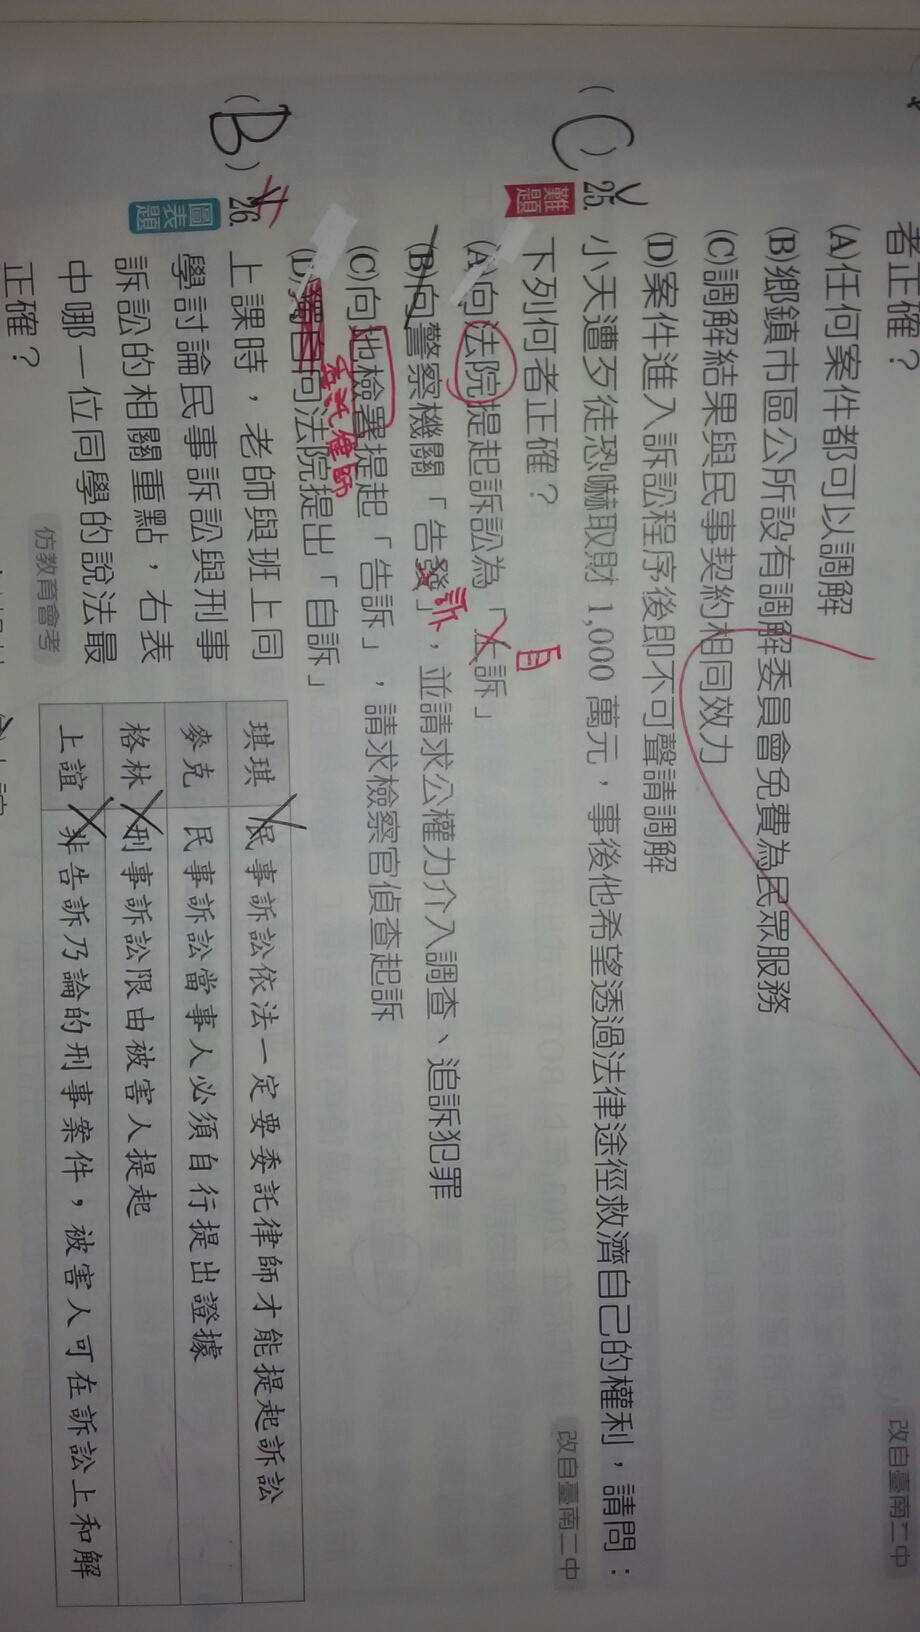 者正確？
(A)任何案件都可以調解
(B)鄉鎮市區公所設有調解委員會免費為民眾服務
(C)調解結果與民事契約相同效力
(D)案件進入訴訟程序後即不可聲請調解
改自臺南二中
(C) 25.
難題
小天遭歹徒恐嚇取財 1,000 萬元，事後他希望透過法律途徑救濟自己的權利，請問：
下列何者正確？
改自臺南二中
(A)向法院提起訴訟為「公訴」
自
(B)向警察機關「告發」，並請求公權力介入調查、追訴犯罪
訴
(C)向地檢署提起「告訴」，請求檢察官偵查起訴
(D)獨自向法院提出「自訴」
委託律師
(B) 26.
圖表題
上課時，老師與班上同
學討論民事訴訟與刑事
訴訟的相關重點，右表
中哪一位同學的說法最
正確？
仿教育會考
琪琪 民事訴訟依法一定要委託律師才能提起訴訟
麥克 民事訴訟當事人必須自行提出證據
格林 刑事訴訟限由被害人提起
上誼 非告訴乃論的刑事案件，被害人可在訴訟上和解